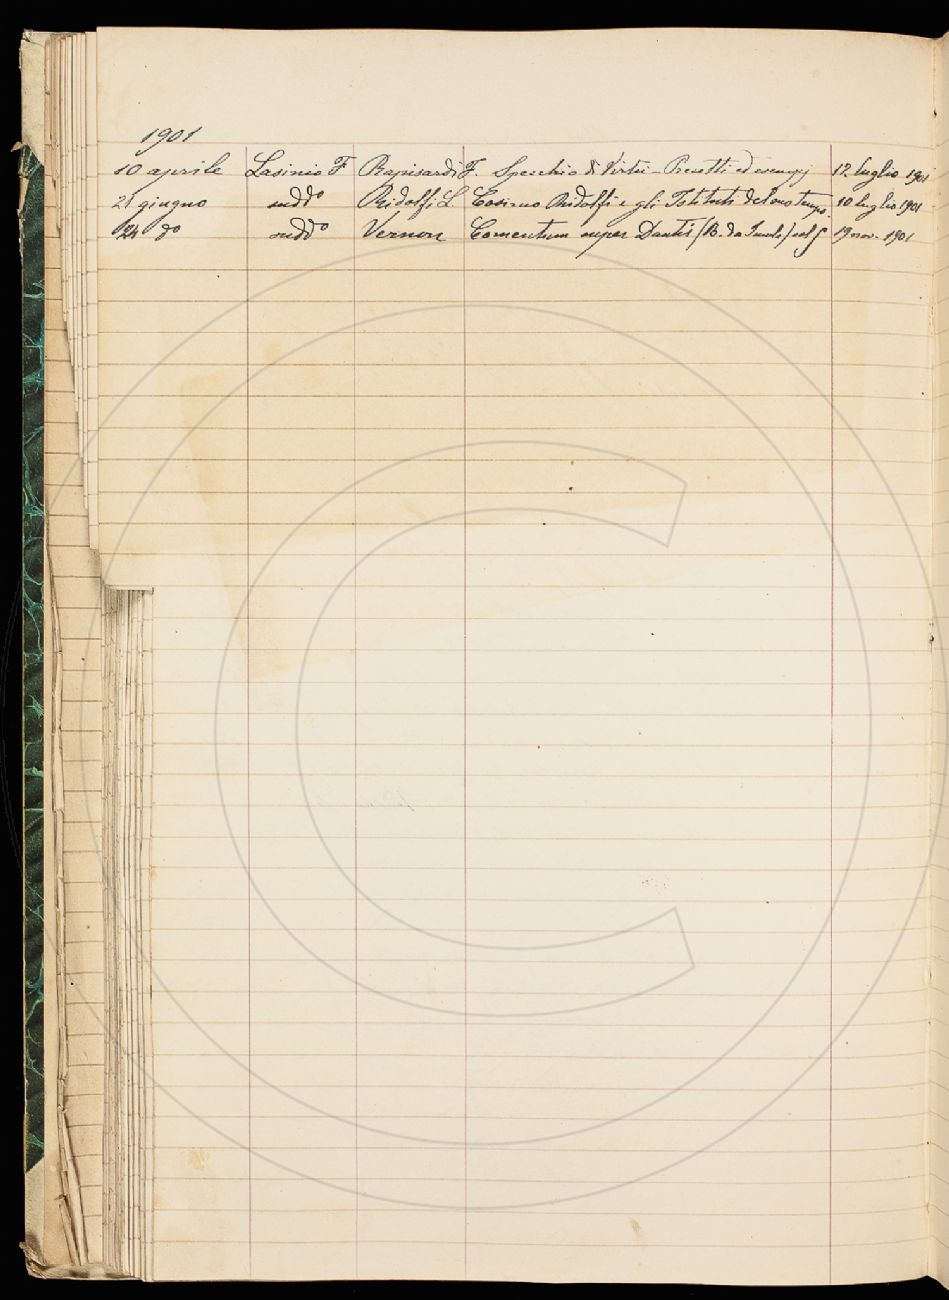 1901
10 aprile Lasinio F Rapisardi F. Specchio di Virtù - Precetti ed esempj 12 luglio 1901
21 giugno suddo Ridolfi L. Cosimo Ridolfi e gli Istituti del suo tempo. 10 luglio 1901
24 do suddo Vernon Comentum super Dantis (B. da Imola) 19 nov. 1901